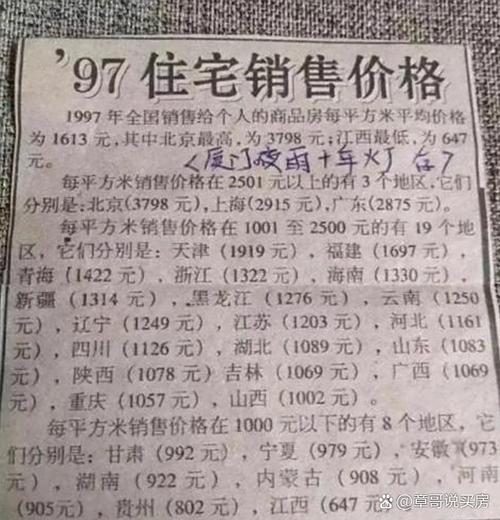 '97住宅销售价格
1997年全国销售给个人的商品房每平方米平均价格
为1613元,其中北京最高,为3798元;江西最低,为647
元。
每平方米销售价格在2501元以上的有3个地区,它们
分别是:北京(3798元),上海(2915元),广东(2875元)。
每平方米销售价格在1001至2500元的有19个地
区,它们分别是:天津(1919元),福建(1697元),
青海(1422元),浙江(1322元),海南(1330元),
新疆(1314元),黑龙江(1276元),云南(1250
元),辽宁(1249元),江苏(1203元),河北(1161
元),四川(1126元),湖北(1089元),山东(1083
元),陕西(1078元)吉林(1069元),广西(1069
元),重庆(1057元),山西(1002元)。
每平方米销售价格在1000元以下的有8个地区,它
们分别是:甘肃(992元),宁夏(979元),安徽(973
元),湖南(922元),内蒙古(908元),河南
(905元),贵州(802元),江西(647元)
章哥说买房